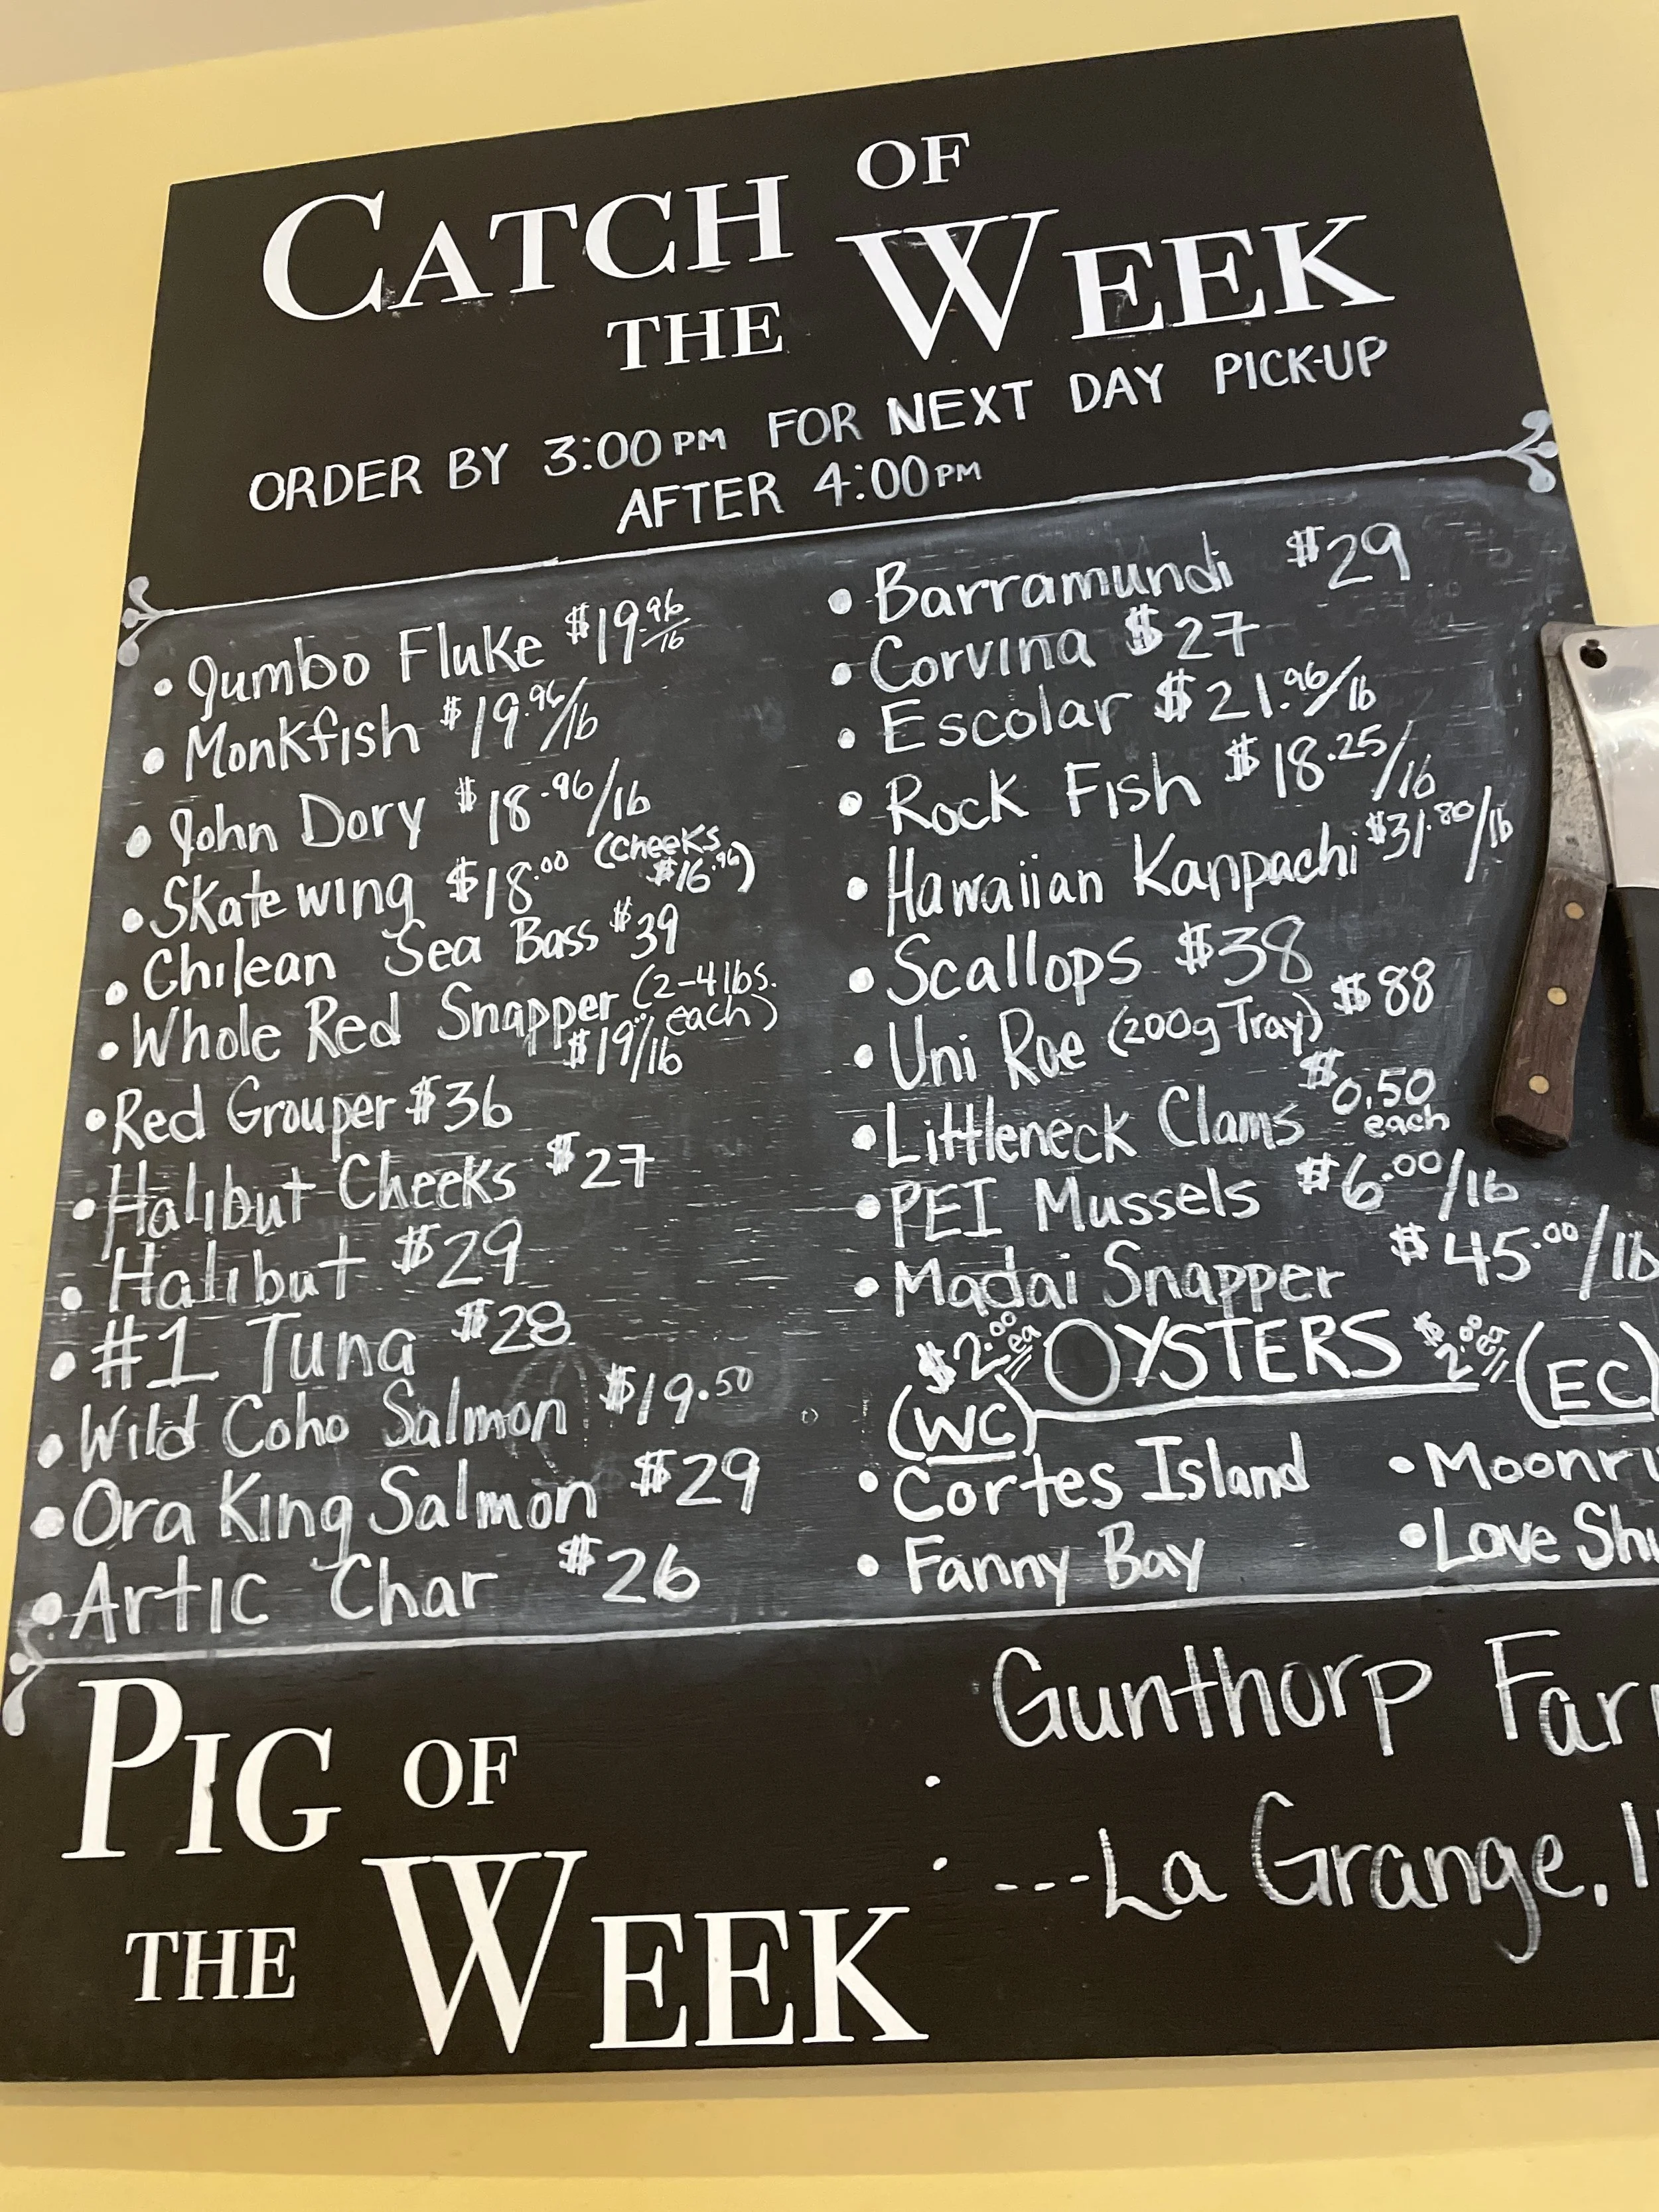 CATCH OF
THE WEEK
ORDER BY 3:00PM FOR NEXT DAY PICK-UP
AFTER 4:00PM
• Jumbo Fluke $19.96/lb
• Monkfish $19.96/lb
• John Dory $18.96/lb
• Skate wing $18.00 (Cheeks $16.96)
• Chilean Sea Bass $39
• Whole Red Snapper (2-4 lbs. each)
$19/lb
• Red Grouper $36
• Halibut Cheeks $27
• Halibut $29
• #1 Tuna $28
• Wild Coho Salmon $19.50
• Ora King Salmon $29
• Artic Char $26
• Barramundi $29
• Corvina $27
• Escolar $21.96/lb
• Rock Fish $18.25/lb
• Hawaiian Kanpachi $31.80/lb
• Scallops $38
• Uni Roe (200g Tray) $88
• Littleneck Clams $0.50 each
• PEI Mussels $6.00/lb
• Madai Snapper $45.00/lb
$2.00 ea OYSTERS $2.00 ea
(WC) (EC)
• Cortes Island • Moonri
• Fanny Bay • Love Shu
PIG OF
THE WEEK
:
Gunthorp Far
---La Grange, I